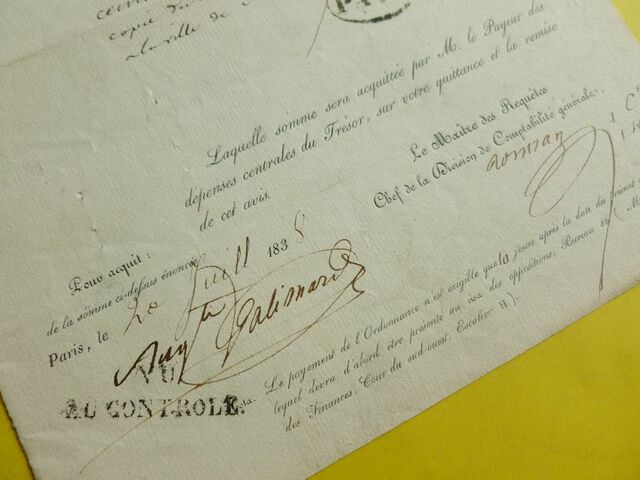 copie
la ville de
PA
Laquelle somme sera acquittée par M. le Payeur des
dépenses centrales du Trésor, sur votre quittance et la remise
de cet avis.
Le Maître des Requêtes
Chef de la Division de Comptabilité générale,
Pour acquit:
de la somme ci-dessus énoncée
Paris, le 20 Juill 1838
Aug te Galimard
VU
AU CONTROLE.
Le payement de l'Ordonnance n'est exigible que 10 jours après la date du présent
lequel devra d'abord être présenté au visa des oppositions, Bureau
des Finances, Cour du sud-ouest, Escalier H).